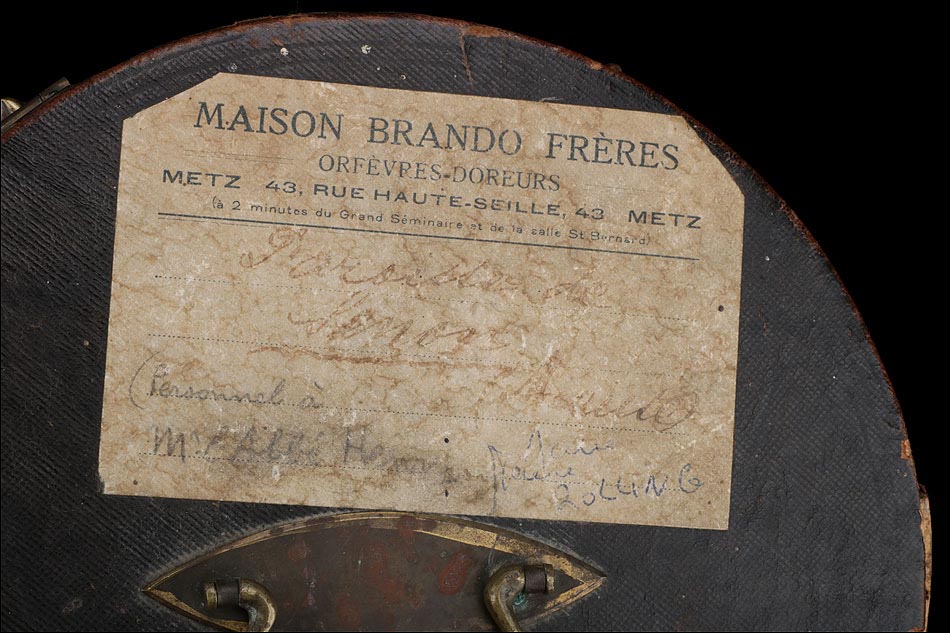 MAISON BRANDO FRÈRES
ORFÈVRES-DOREURS
METZ 43, RUE HAUTE-SEILLE, 43 METZ
(à 2 minutes du Grand Séminaire et de la salle St Bernard)
de
(Personnel à
Mr l'Abbé
ZOLLING